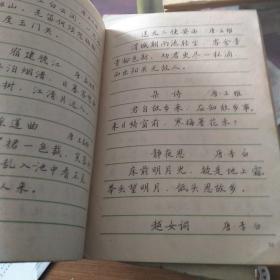 白云间
度玉门关
宿建德江 唐
泊烟渚，日暮客
树，江清月近人
采莲曲 唐王
裙一色裁
乱入池中看不
人来。
送元二使安西 唐王维
渭城朝雨浥轻尘 客舍青
青柳色新 劝君更尽一杯酒
西出阳关无故人。
杂诗 唐王维
君自故乡来，应知故乡事。
来日绮窗前，寒梅著花未？
静夜思 唐李白
床前明月光，疑是地上霜。
举头望明月，低头思故乡。
越女词 唐李白